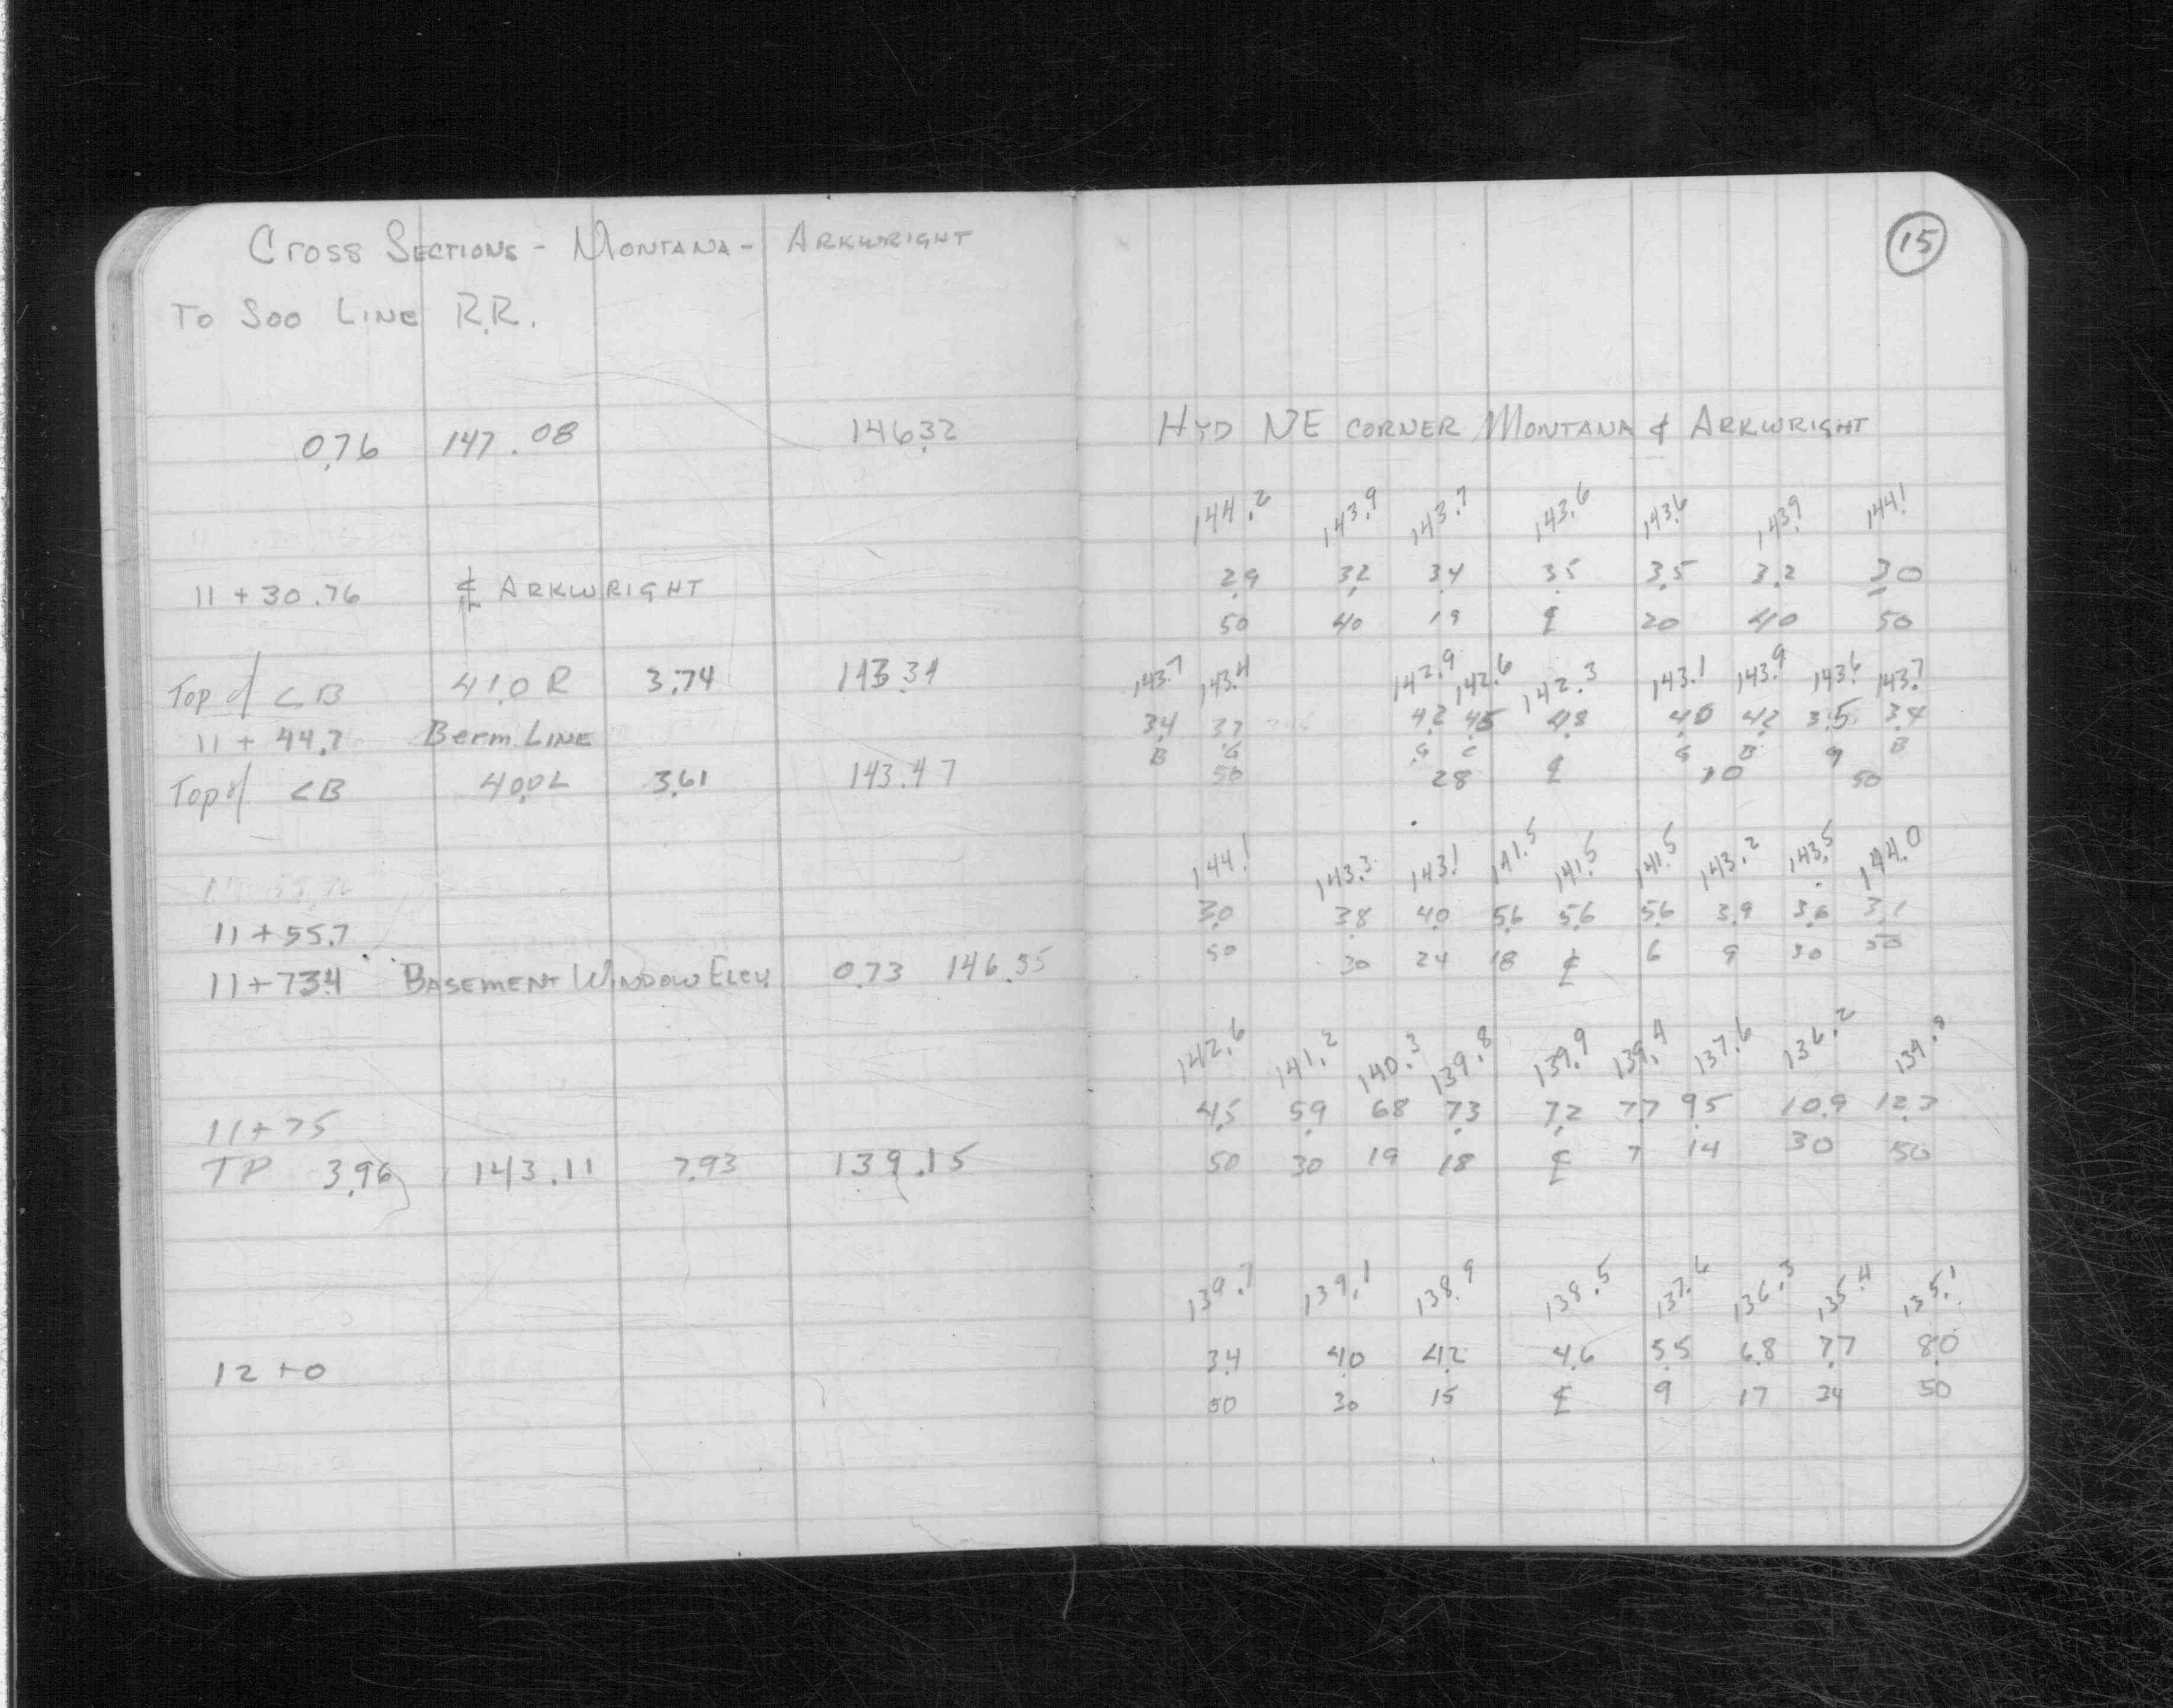 Cross Sections - Montana - Arkwright
To Soo Line R.R.
15
0.76 147.08 146.32
Hyd NE corner Montana & Arkwright
144.2 143.9 143.7 143.6 143.6 143.9 144.1
11+30.76 ℄ Arkwright
2.9 3.2 3.4 3.5 3.5 3.2 3.0
50 40 19 ℄ 20 40 50
Top of CB 41.0 R 3.74 143.34
143.7 143.4 142.9 142.6 142.3 143.1 143.9 143.6 143.7
11+44.7 Berm Line
3.4 3.7 4.2 4.5 4.8 4.0 4.2 3.5 3.4
B G G C ℄ G B G B
Top of CB 40.0L 3.61 143.47
50 28 10 50
144.1 143.3 143.1 141.5 141.5 141.5 143.2 143.5 144.0
11+55.7
3.0 3.8 4.0 5.6 5.6 5.6 3.9 3.6 3.1
50 30 24 18 ℄ 6 9 30 50
11+73.4 Basement Window Elev 0.73 146.35
142.6 141.2 140.3 139.8 139.9 139.4 137.6 136.2
11+75
4.5 5.9 6.8 7.3 7.2 7.7 9.5 10.9 12.7
50 30 19 18 ℄ 7 14 30 50
TP 3.96 143.11 7.93 139.15
139.7 139.1 138.9 138.5 137.6 136.3 135.4 135.1
12+0
3.4 4.0 4.2 4.6 5.5 6.8 7.7 8.0
50 30 15 ℄ 9 17 34 50